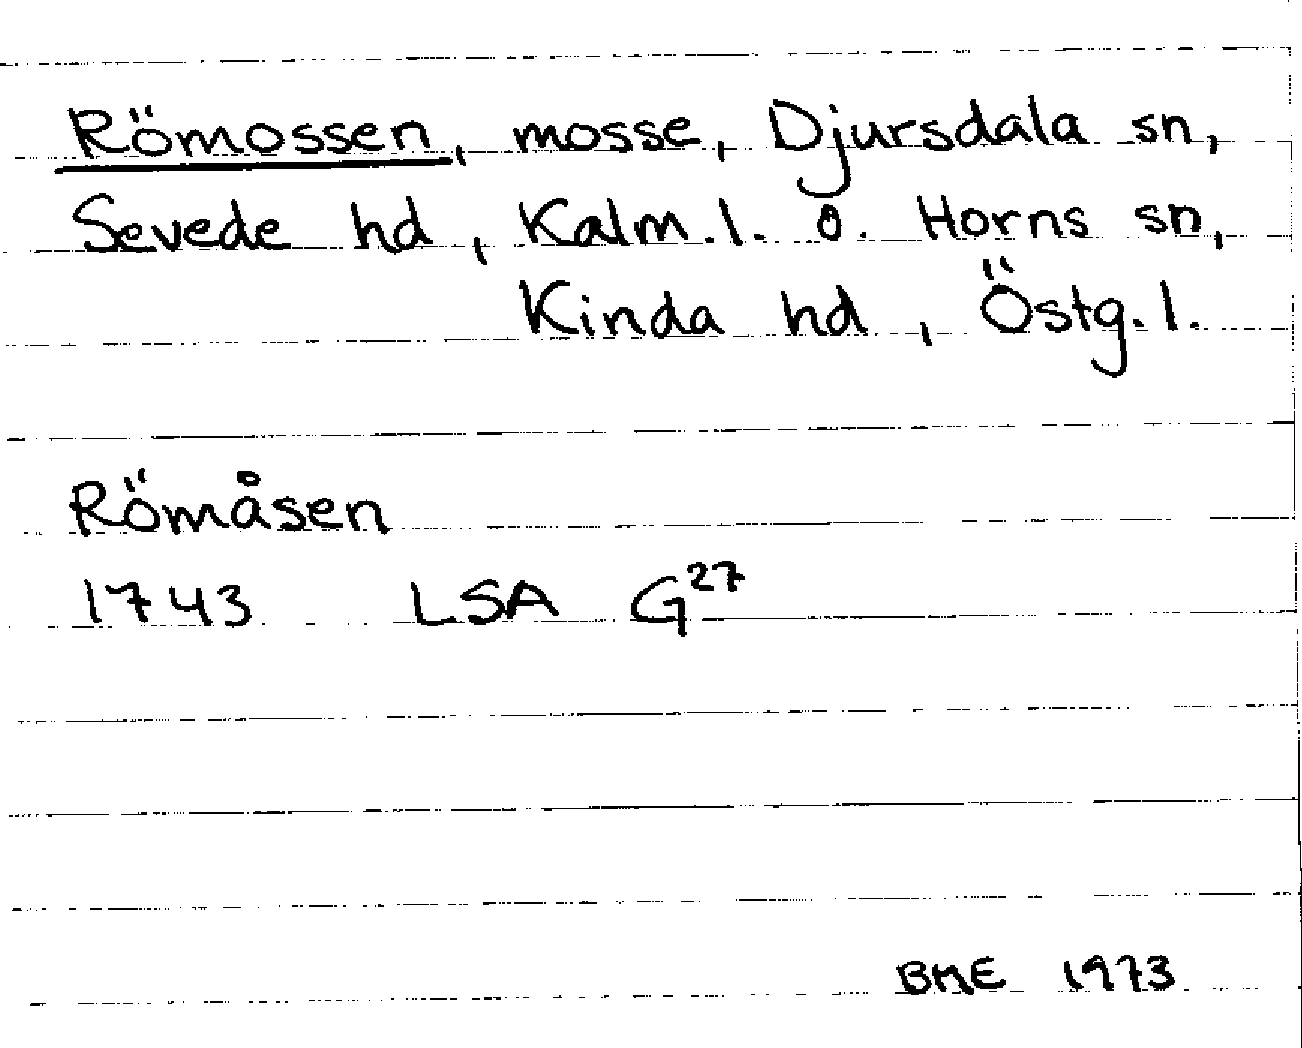 Römossen, mosse, Djursdala sn,
Sevede hd, Kalm. l. o. Horns sn,
Kinda hd, Östg. l.
Römåsen
1743 LSA G27
BME 1973